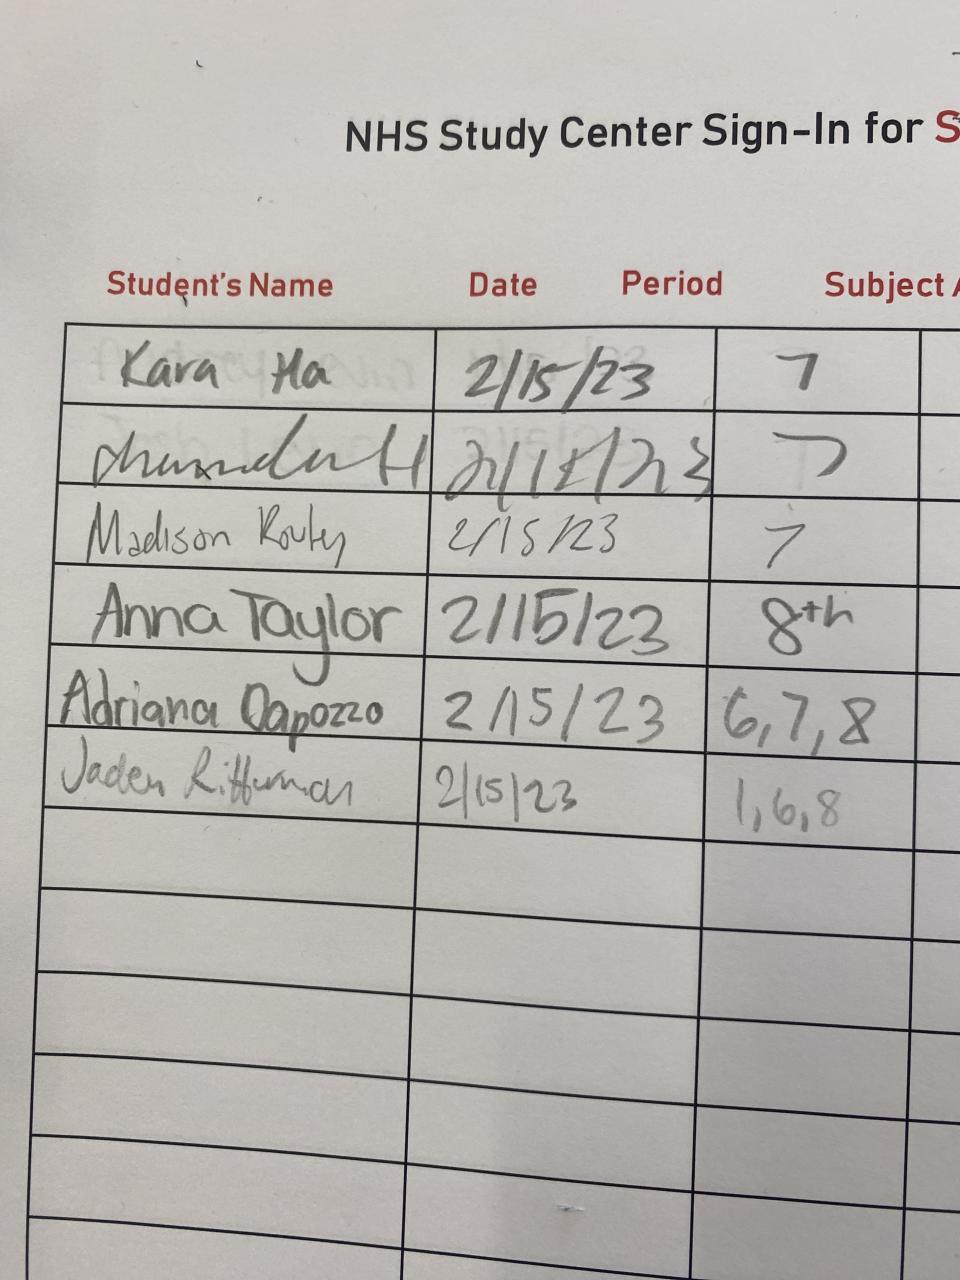 NHS Study Center Sign-In for S
Student's Name Date Period Subject A
Kara Ha 2/15/23 7
H 2/15/23 7
Madison 2/15/23 7
Anna Taylor 2/15/23 8th
Adriana Capozzo 2/15/23 6,7,8
Jaden 2/15/23 1,6,8